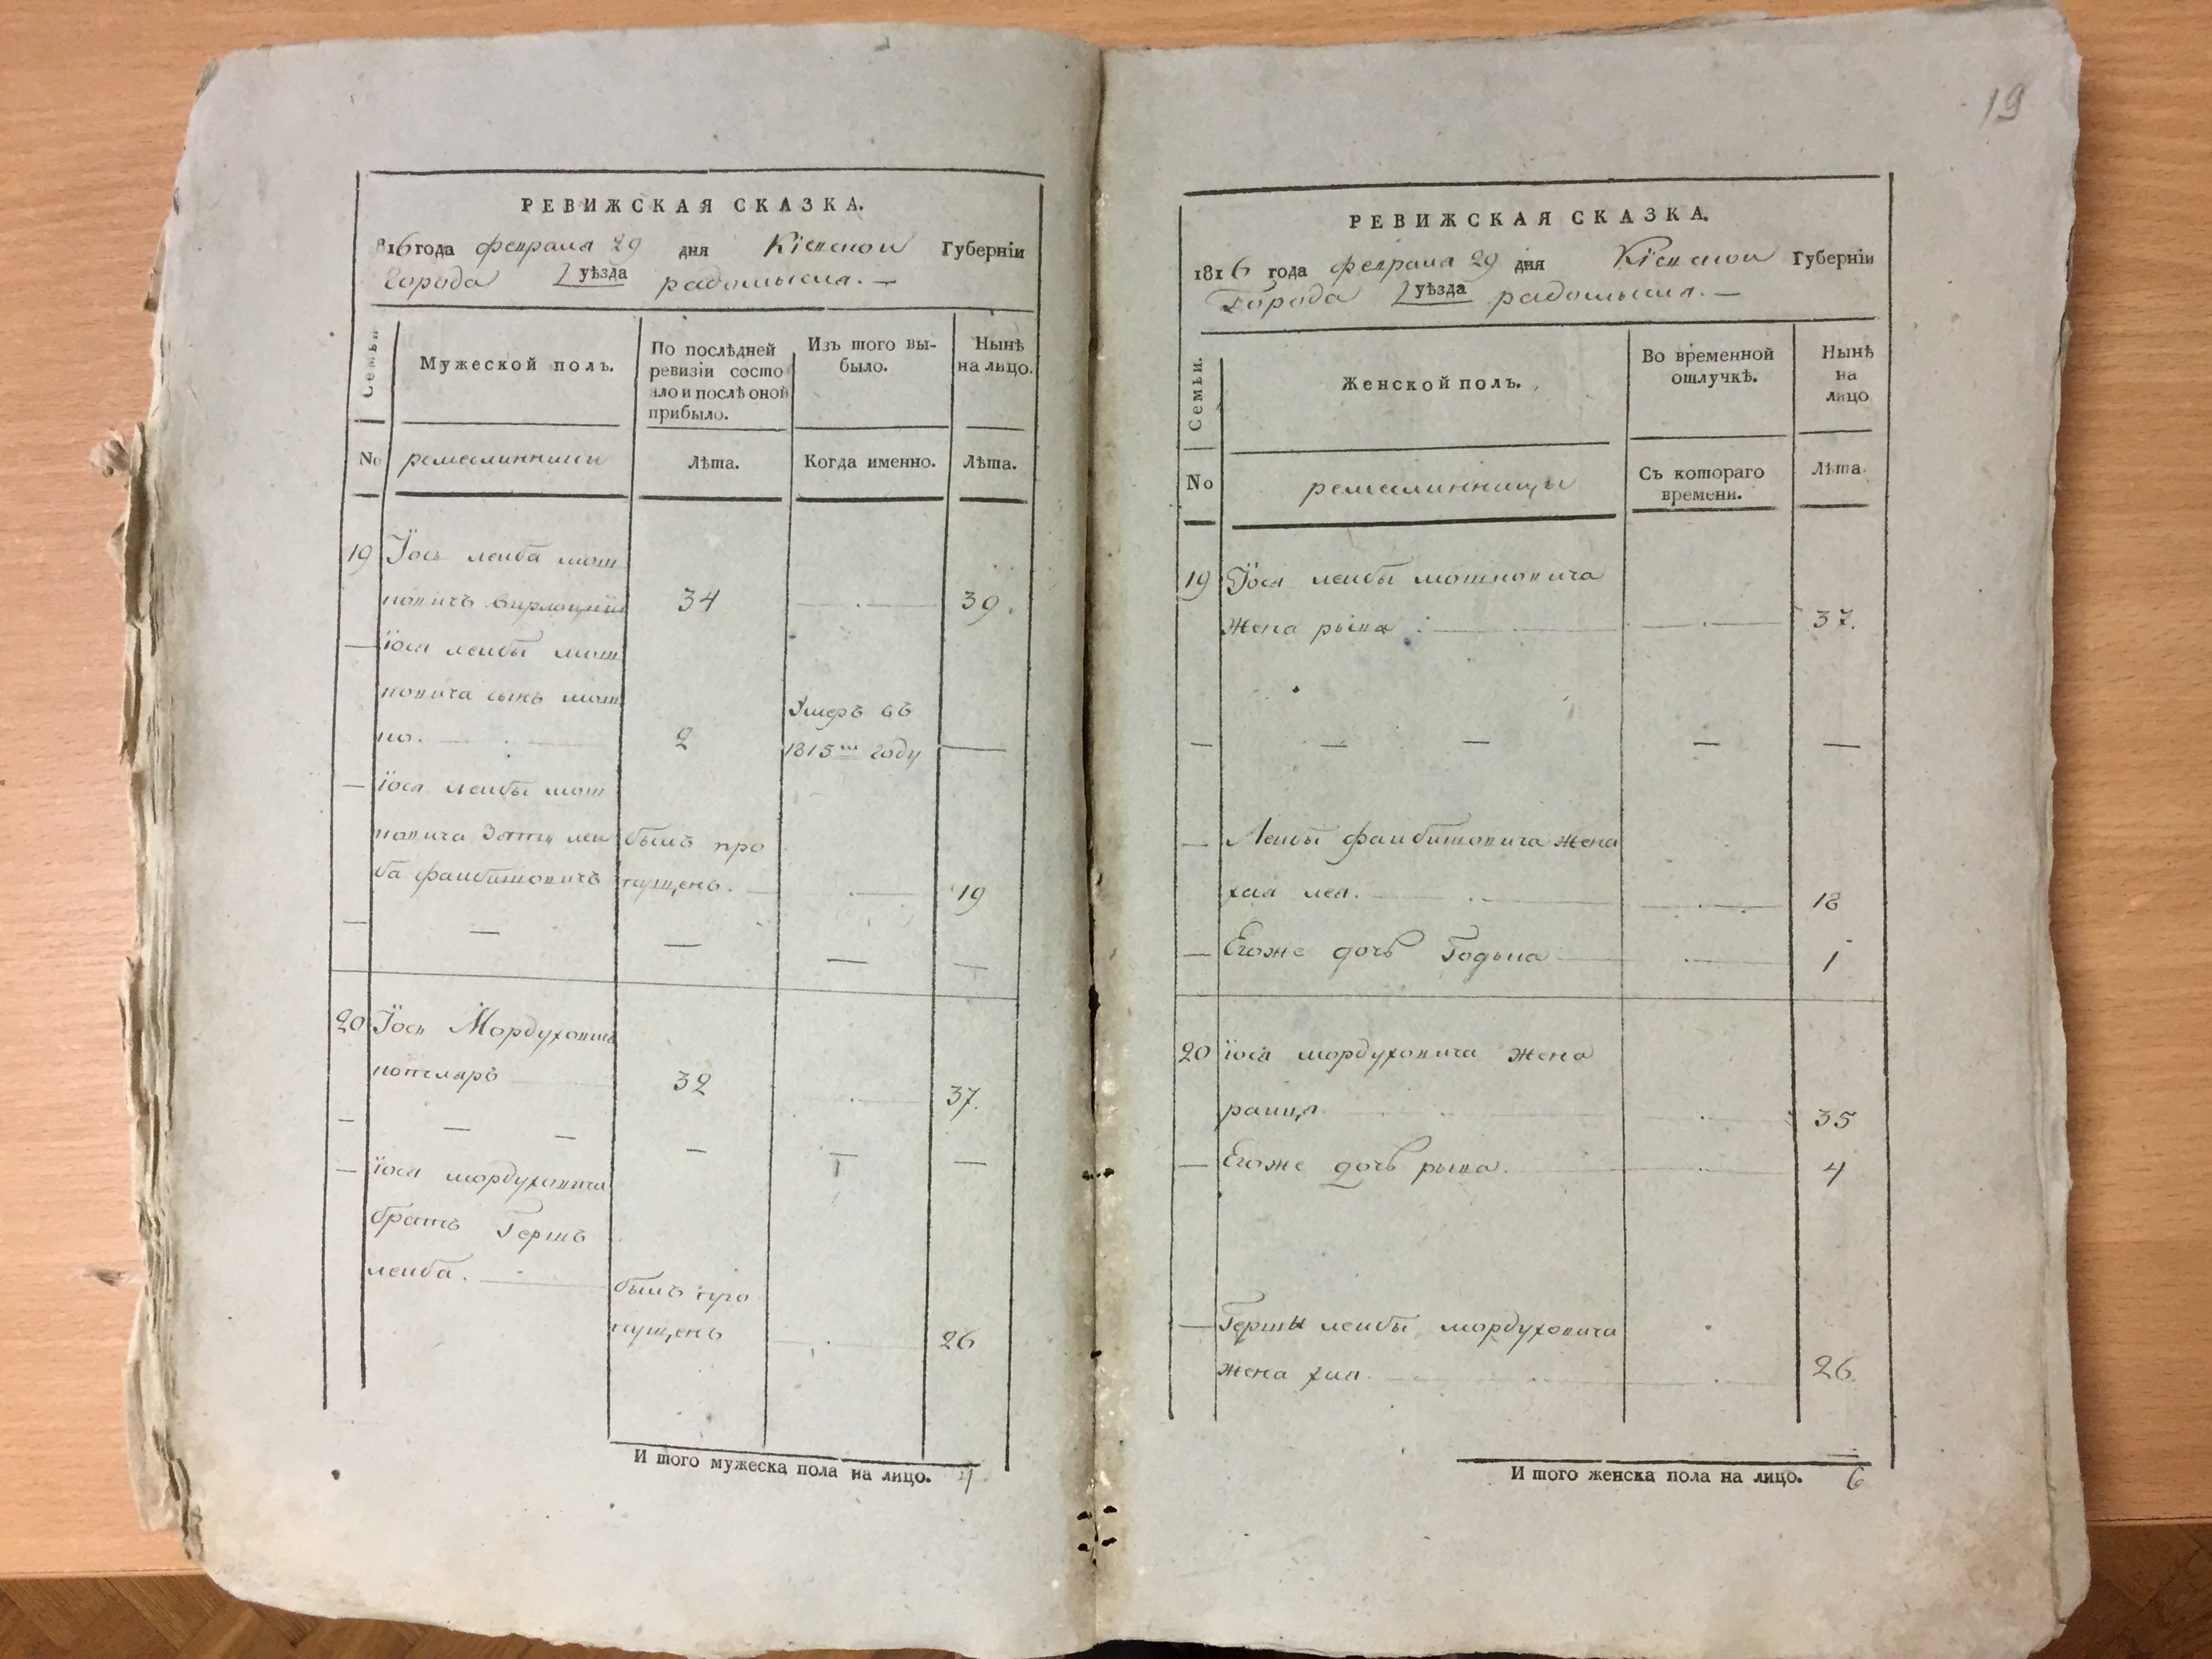 РЕВИЖСКАЯ СКАЗКА.
816 года февраля 29 дня Кіевской Губерніи
Города уѣзда радомысля. —
Семьи
Мужеской полъ.
По послѣдней ревизіи состо
яло и послѣ оной прибыло.
Изъ того вы-
было.
Нынѣ
на лицо.
No ремеслинники Лѣта. Когда именно. Лѣта.
19 Їось леиба мот
ковичъ вирлоцкїй 34 39.
— їося леибы мот
ковича сынъ мот
ко. 2 Умеръ въ
1815м году —
— їося леибы мот
ковича Зять леи былъ про
ба фаибишовичъ пущенъ. 19
— — — — —
20 Їось Мордуховичъ
котляръ 32 37.
— — — — — —
— їося мордуховича
братъ Гершъ
леиба. былъ про
пущенъ 26
И того мужеска пола на лицо. 4
19
РЕВИЖСКАЯ СКАЗКА.
1816 года февраля 29 дня Кіевской Губерніи
Города уѣзда радомысля. —
Семьи.
Женской полъ.
Во временной
отлучкѣ.
Нынѣ
на
лицо
No ремеслинницы Съ котораго
времени. Лѣта.
19 Їося леибы мотковича
жена рыва 37.
— — — — —
— Леибы фаибишовича жена
хая лея. 18
— Егоже дочь Годыа 1
20 їося мордуховича жена
раица 35
— Егоже дочь рыва. 4
— Гершы леибы мордуховича
жена хая. 26.
И того женска пола на лицо. 6